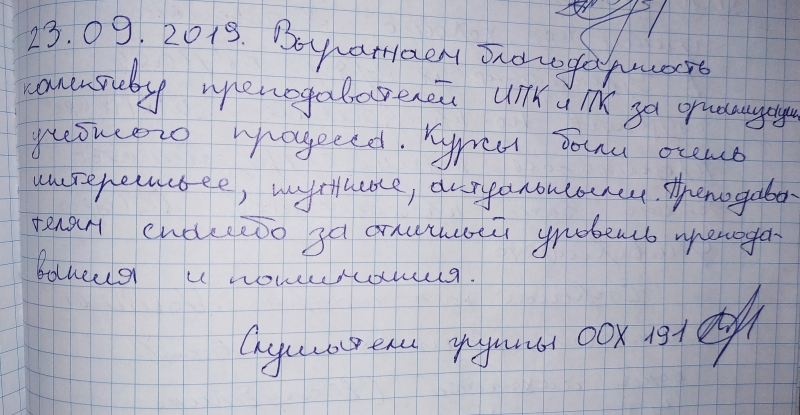 23.09.2019. Выражаем благодарность
коллективу преподавателей ИПК и ПК за организацию
учебного процесса. Курсы были очень
интересные, нужные, актуальными. Преподава-
телям спасибо за отличный уровень препода-
вания и понимания.
Слушатели группы ООХ 191